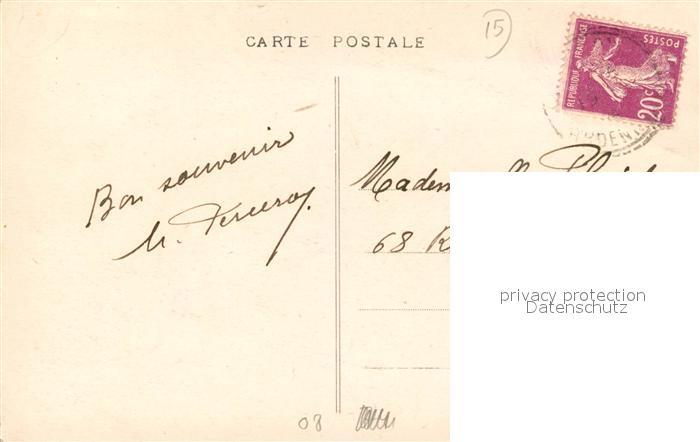 CARTE POSTALE
15
REPUBLIQUE FRANÇAISE
POSTES
20c
ARDENNES
Bon souvenir
68 R
privacy protection
Datenschutz
08